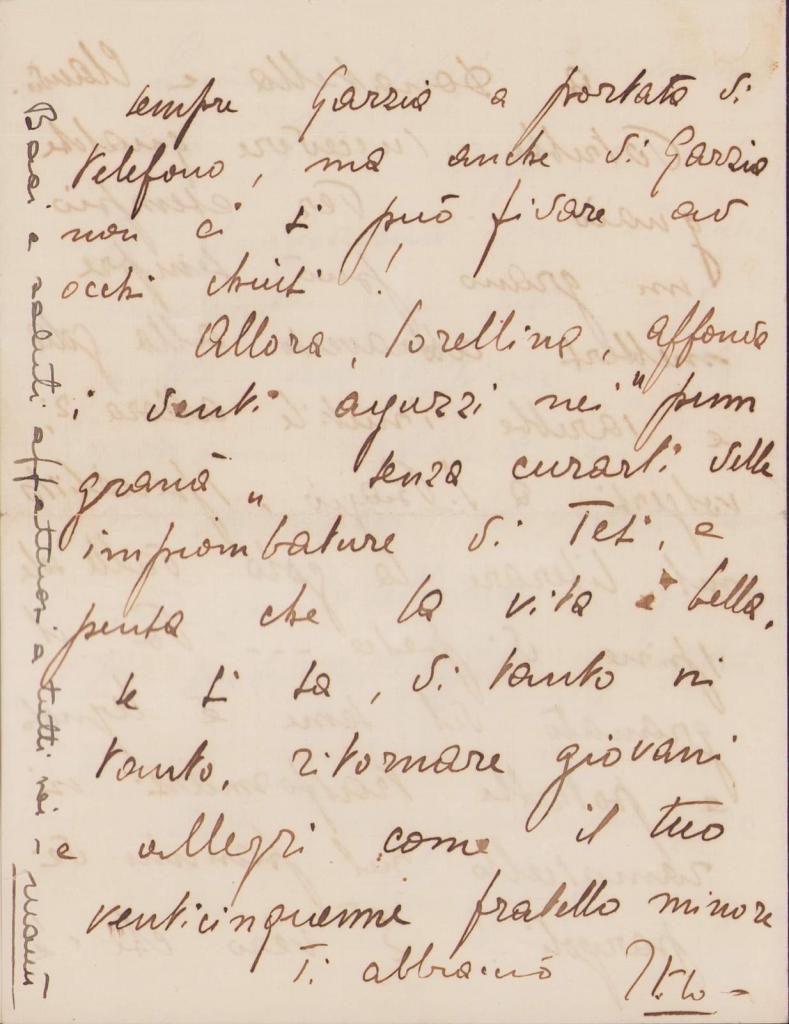 sempre Garzia a portata di
telefono, ma anche di Garzia
non ci si può fidare ad
occhi chiusi!
Allora, Sorellina, affonda
i denti aguzzi nei "pom
granà" senza curarti delle
impiombature di Tesi, e
pensa che la vita è bella,
se si sa, di tanto in
tanto, ritornare giovani
e allegri come il tuo
venticinquenne fratello minore
Ti abbraccio
Baci e saluti affettuosi a tutti voi -